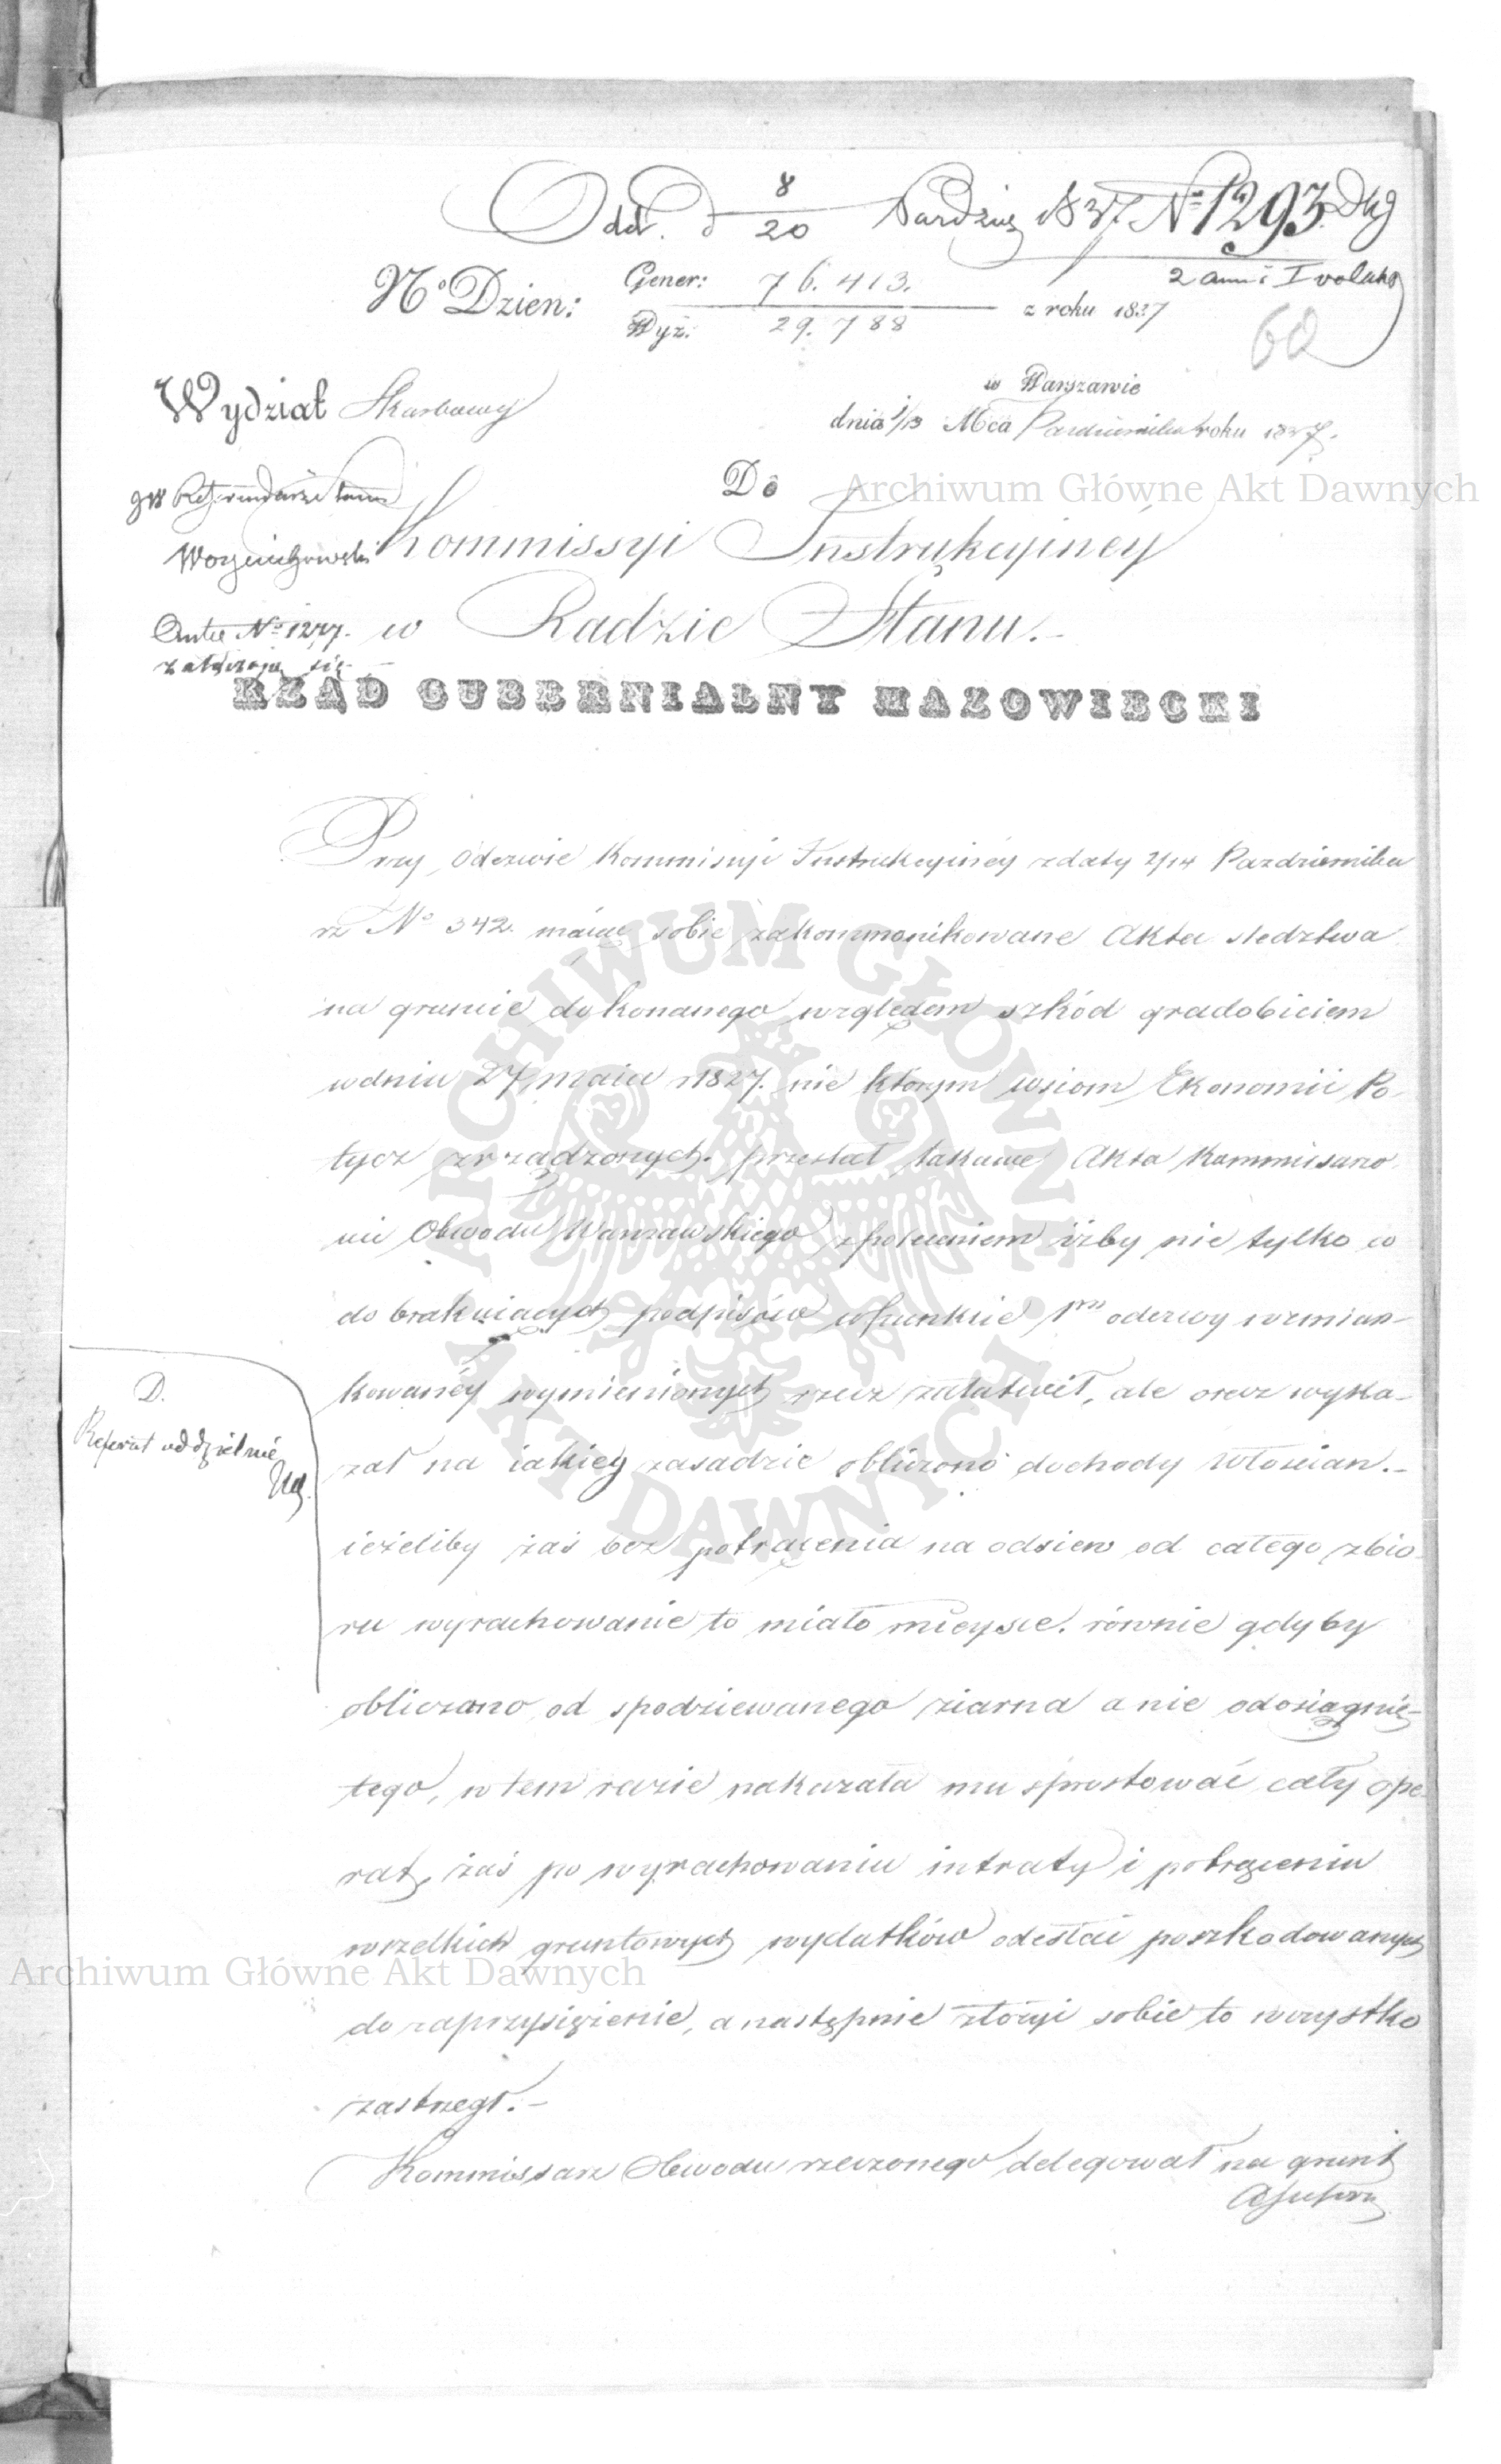 Odd. d 8/20 Pardzier 1837 № 1293. Dłg
2 Ann: i I volum
N° Dzien: Gener: 76.413. / Wyż: 29.788 z roku 1837
60
Wydział Skarbowy
w Warszawie
dnia 1/13 Mca Pazdziernika roku 1837.
Do
Kommissyi Instrukcyinéy
w Radzie Stanu.-
Woyciechowski
Antec. N° 1277.
załączają się
RZĄD GUBERNIALNY MAZOWIECKI
Przy Odezwie Kommissyi Instrukcyinéy z daty 2/14 Pazdziernika
rz N° 342. maiąc sobie zakommonikowane Akta sledztwa
na gruncie dokonanego względem szkód gradobiciem
w dniu 27 maia 1827. nie którym wsiom Ekonomii Po-
tycz zrządzonych. przesłał takowe Akta Kommissarzo-
wi Obwodu Warszawskiego z poleceniem iżby nie tylko co
do brakuiących podpisów w punkcie 1m odezwy wzmian-
kowanéy wymienionych rzecz załatwił, ale oraz wyka-
zał na iakiey zasadzie obliczono dochody Włościan.-
ieżeliby zaś bez potrącenia na odsiew od całego zbio-
ru wyrachowanie to miało mieysce. równie gdyby
obliczono od spodziewanego ziarna a nie od osiągnię-
tego, w tem razie nakazała mu sprostować cały ope-
rat, zaś po wyrachowaniu intraty i potrąceniu
wszelkich gruntowych wydatków odesłać poszkodowanych
do zaprzysiężenie, a następnie złożyć sobie to wszystko
zastrzegł.-
Kommissarz Obwodu rzeczonego delegował na grunt
Assessora
D.
Referat oddzielnie
Archiwum Główne Akt Dawnych
ARCHIWUM GŁÓWNE AKT DAWNYCH
Archiwum Główne Akt Dawnych